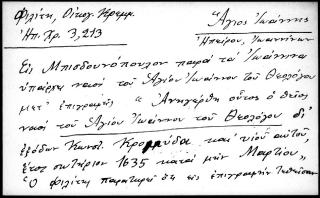 Φιλίτη, Οἰκογ. Κρομμ.
Ἠπ. Χρ. 3,213
Ἅγιος Ἰωάννης
Ἠπείρου, Ἰωαννίνων
Εἰς Μπισδουνόπουλον παρὰ τὰ Ἰωάννινα
ὑπάρχει ναὸς τοῦ Ἁγίου Ἰωάννου τοῦ Θεολόγου
μετ' ἐπιγραφῆς « Ἀνηγέρθη οὗτος ὁ θεῖος
ναὸς τοῦ Ἁγίου Ἰωάννου τοῦ Θεολόγου δι'
ἐξόδων Κωνστ. Κρομμύδα καὶ υἱοῦ αὐτοῦ,
ἔτος σωτήριον 1635 κατὰ μῆν Μαρτίου »
Ὁ Φιλίτης παρατηρεῖ ὅτι ἡ ἐπιγραφὴ